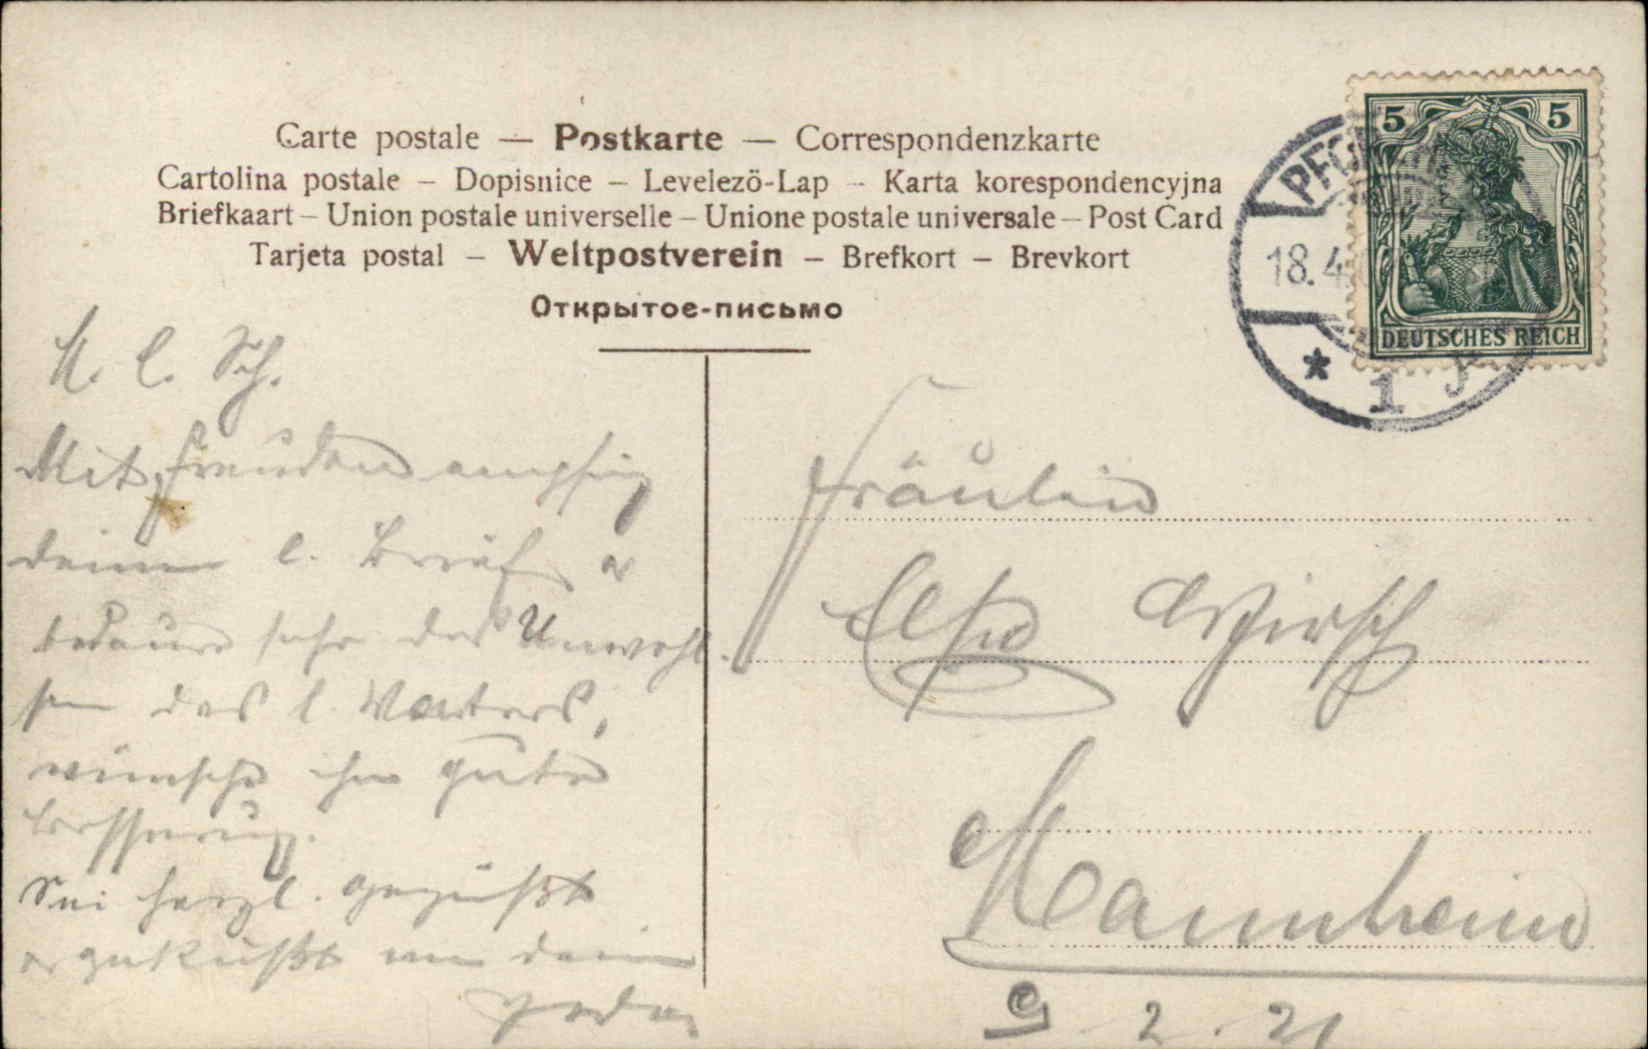 Carte postale — Postkarte — Correspondenzkarte
Cartolina postale – Dopisnice – Levelezö-Lap – Karta korespondencyjna
Briefkaart – Union postale universelle – Unione postale universale – Post Card
Tarjeta postal – Weltpostverein – Brefkort – Brevkort
Открытое-письмо
5 5
DEUTSCHES REICH
18.4
* 1
M. l. Sch.
Mit Freuden empfing
deinen l. Brief u
bedaure sehr das Unwohl-
sein des l. Vaters,
wünsche ihm gute
Besserung.
Sei herzl. gegrüßt
u geküßt von dein
Fräulein
Elsa Wirsch
Mannheim
G 2. 21